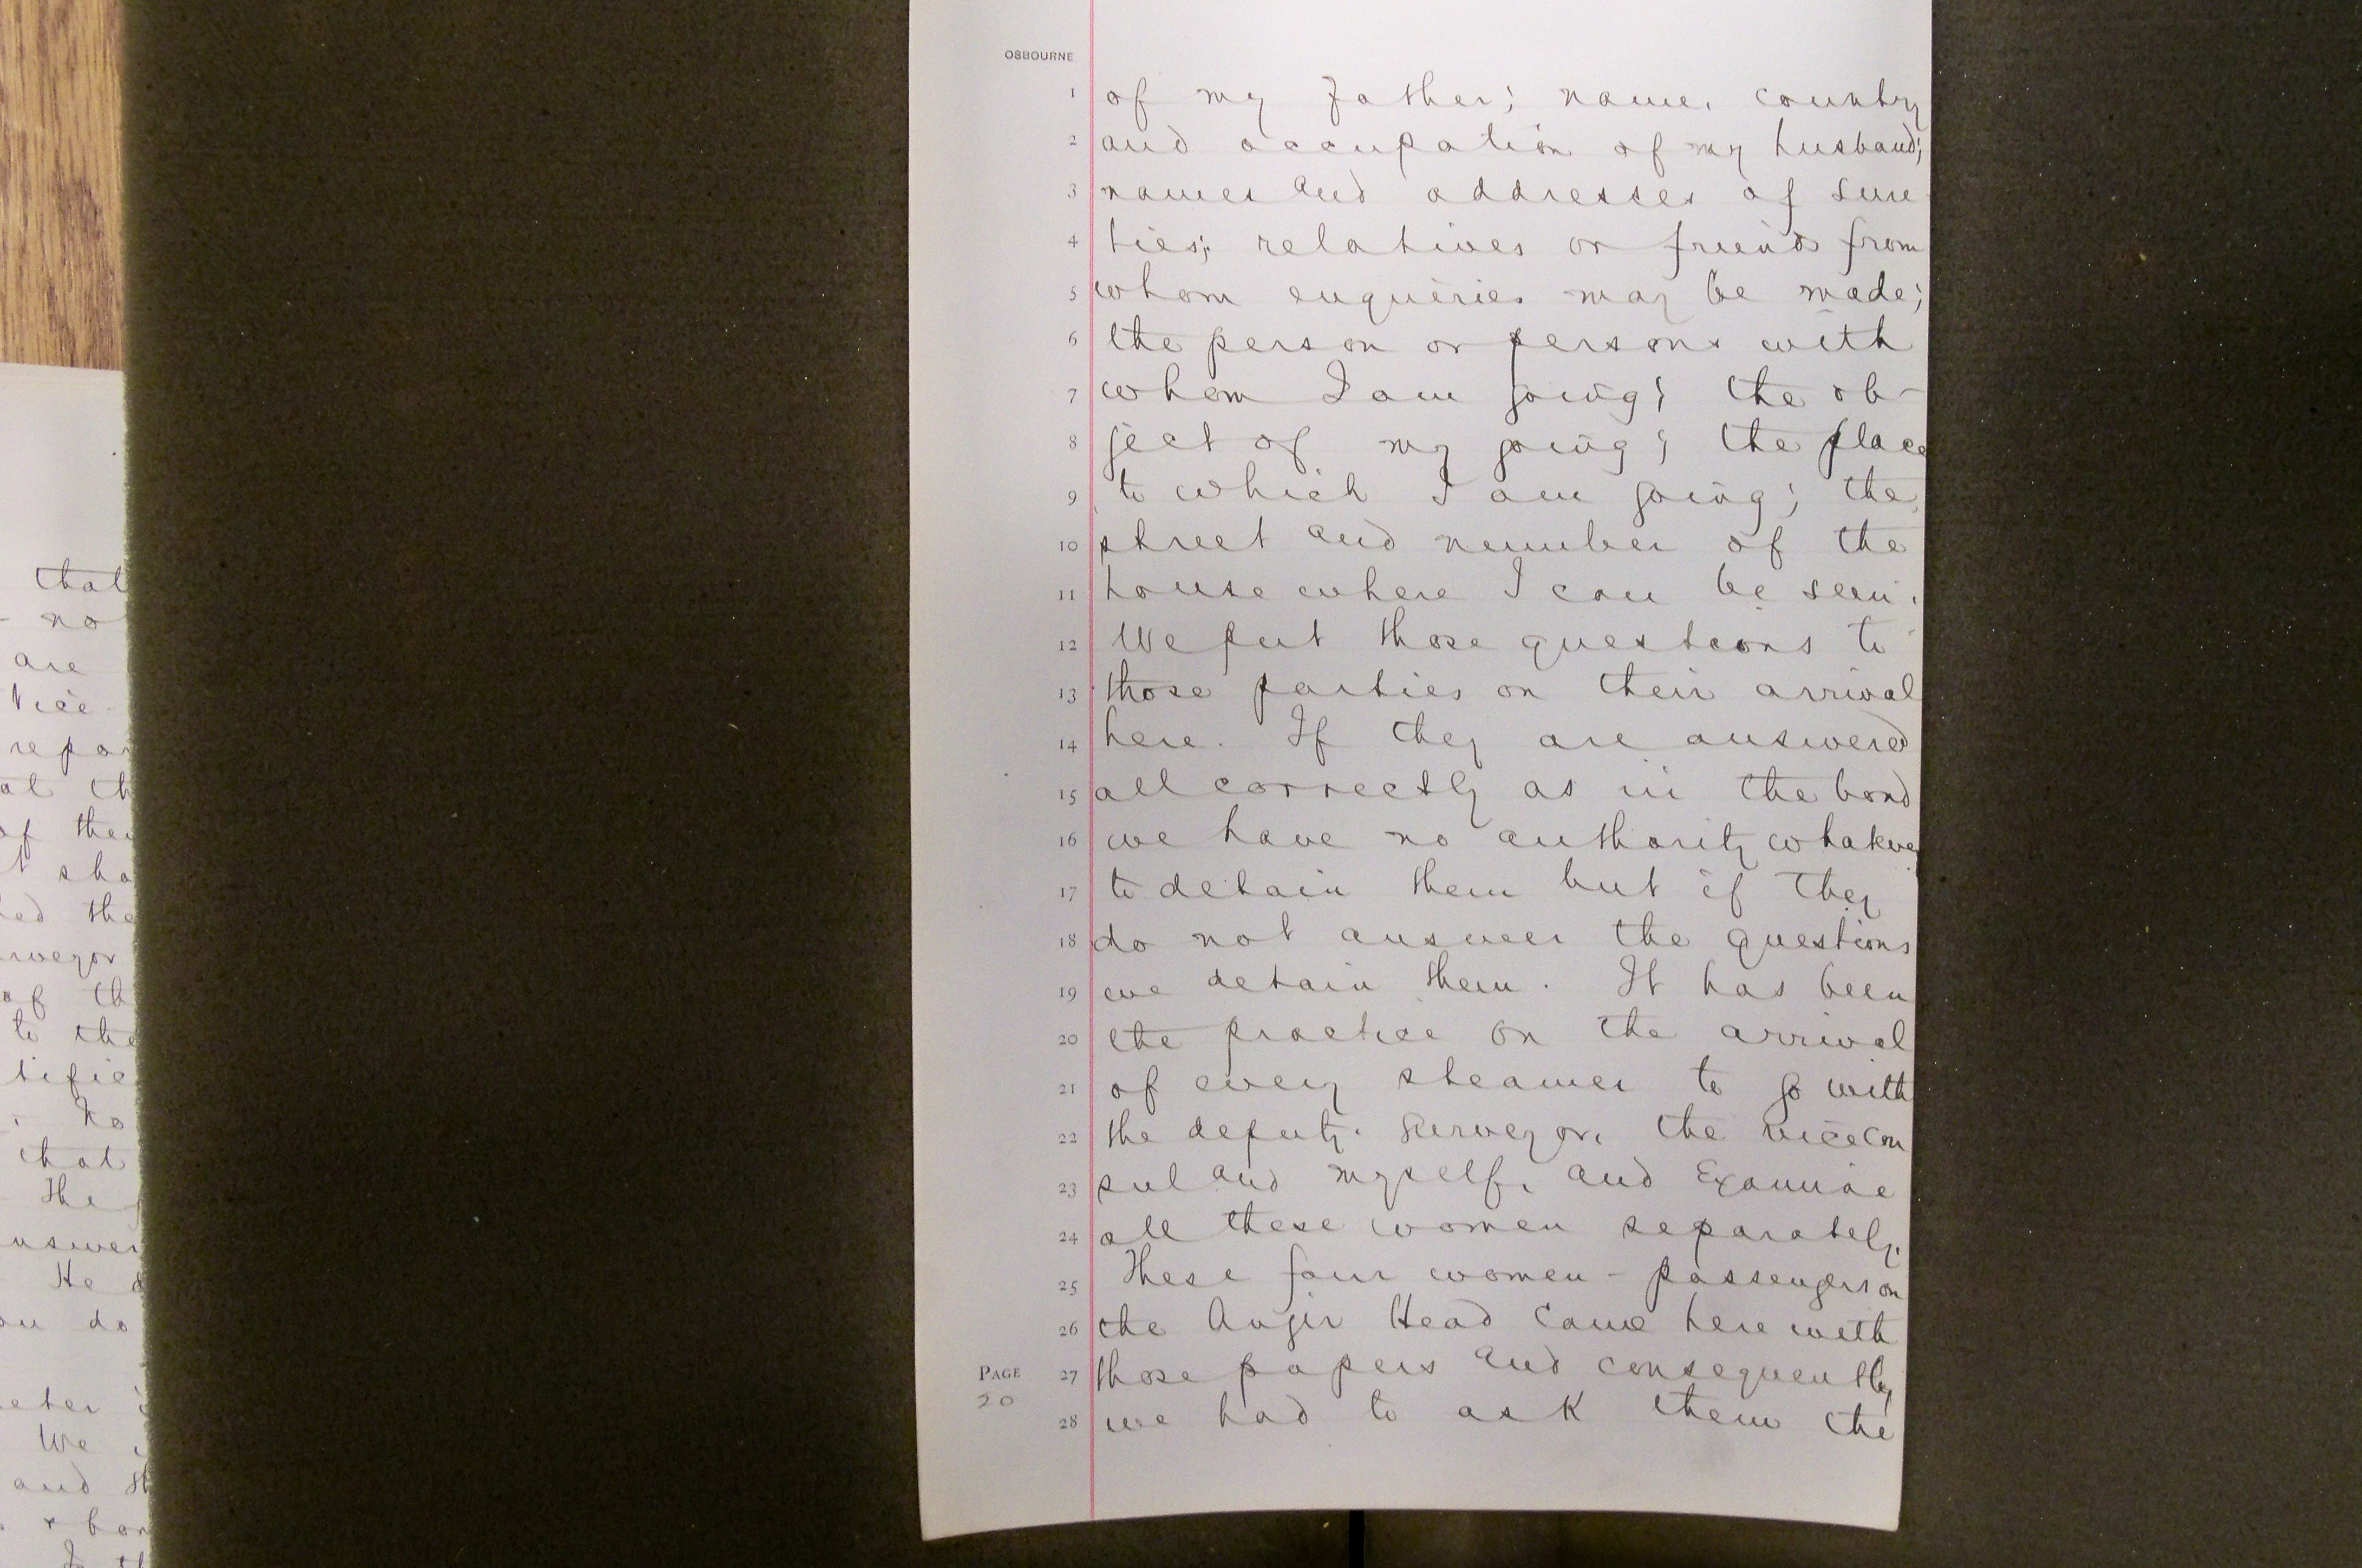 that
no
are
vice
repor
at th
of the
t sha
ed the
rveyor
of th
to the
tifie
. No
that
The
nswer
He d
ou do
eter
We
and th
bon
OSBOURNE
1 of my father; name, country
2 and occupation of my husband;
3 names and addresses of sure-
4 ties; relatives or friends from
5 whom enquiries may be made;
6 the person or persons with
7 whom I am going; the ob-
8 ject of my going; the place
9 to which I am going; the
10 street and number of the
11 house where I can be seen.
12 We put those questions to
13 those parties on their arrival
14 here. If they are answered
15 all correctly as in the bond
16 we have no authority whatever
17 to detain them but if they
18 do not answer the questions
19 we detain them. It has been
20 the practice on the arrival
21 of every steamer to go with
22 the deputy surveyor, the vice Con
23 sul and myself, and Examine
24 all these women separately.
25 These four women - passengers on
26 the Anjer Head came here with
27 those papers and consequently
28 we had to ask them the
PAGE
20